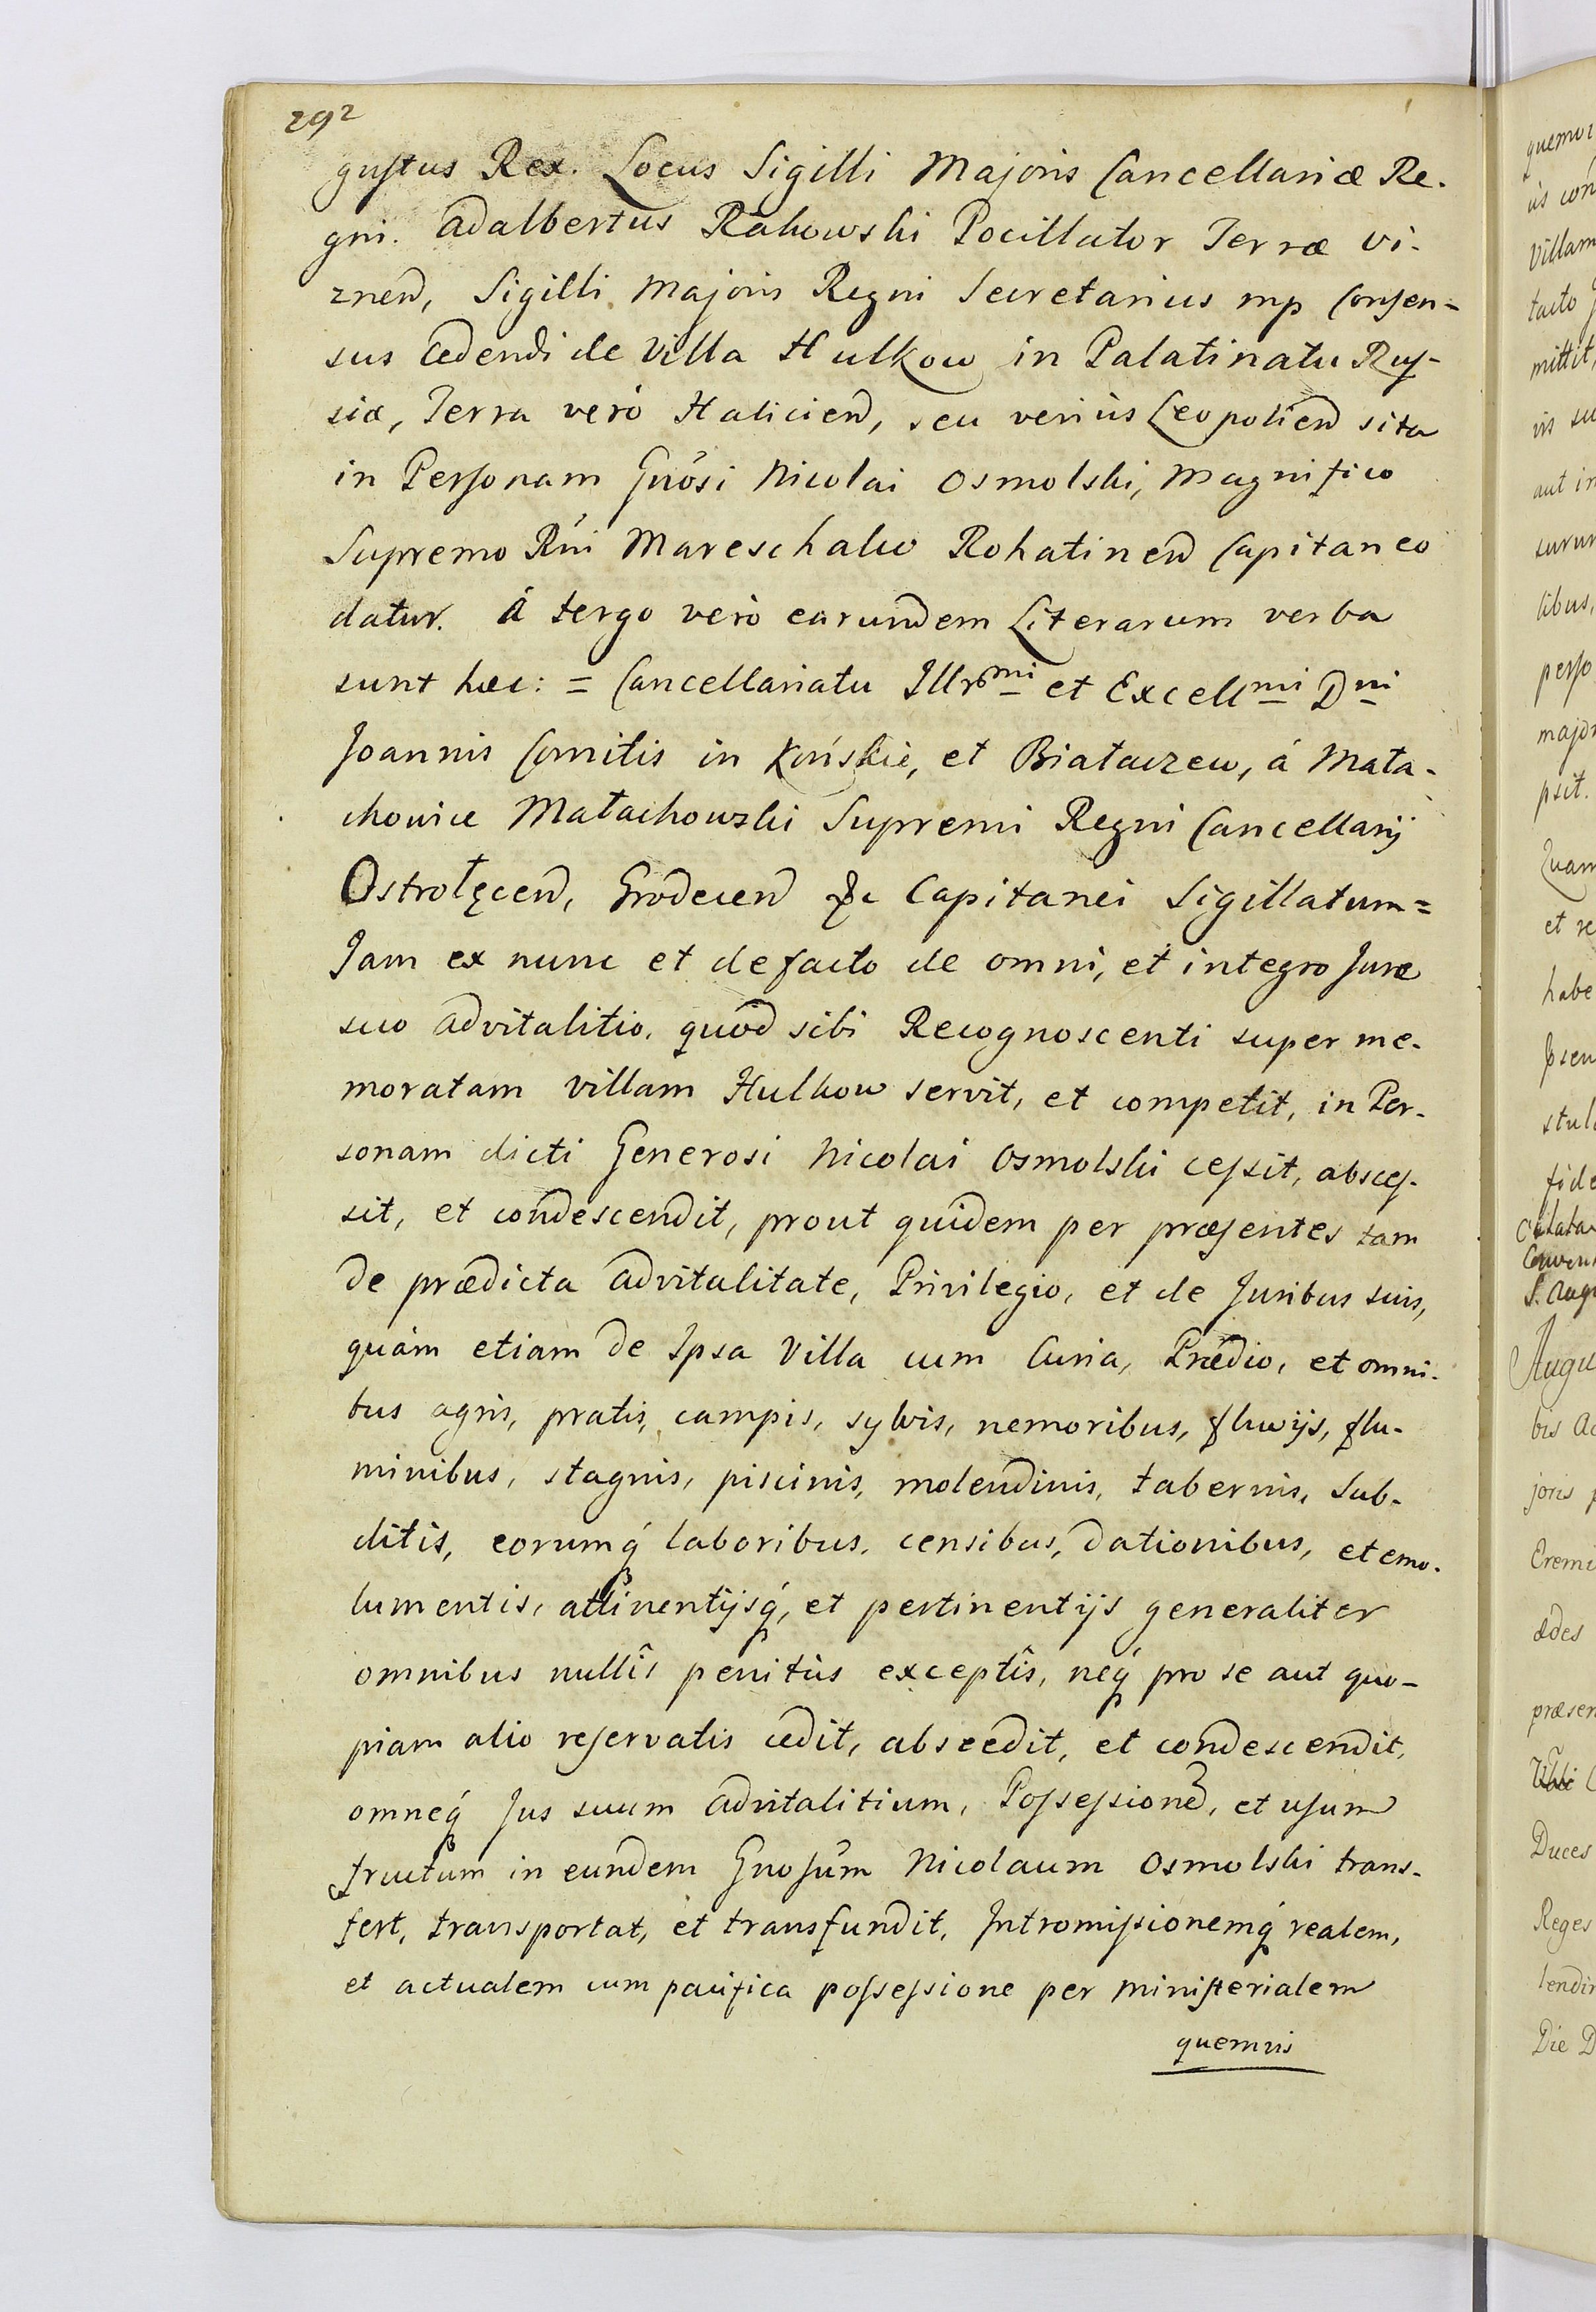 292
gustus Rex. Locus Sigilli Majoris Cancellariæ Re-
gni. Adalbertus Rakowski Pocillator Terræ Vi-
znen, Sigilli Majoris Regni Secretarius mp Consen-
sus Cedendi de Villa Hulkow in Palatinatu Rus-
siæ, Terra verò Halicien, seu veriùs Leopolien sita
in Personam Gnôsi Nicolai Osmolski, Magnifico
Supremo Rni Mareschalco Rohatinen Capitaneo
datur. à tergo verò earundem Literarum verba
sunt hæc: = Cancellariatu Illrmi et Excellmi Dni
Joannis Comitis in Końskie, et Białaczew, à Mała-
chowice Małachowski Supremi Regni Cancellarij
Ostrołęcen, Grodecen &c Capitanei Sigillatum =
Jam ex nunc et de facto de omni, et integro Jure
suo advitalitio, quod sibi Recognoscenti super me-
moratam villam Hulkow servit, et competit, in Per-
sonam dicti Generosi Nicolai Osmolski cessit, absces-
sit, et condescendit, prout quidem per præsentes tam
de prædicta advitalitate, Privilegio, et de Juribus suis,
quàm etiam de Ipsa Villa cum Curia, Prædio, et omni-
bus agris, pratis, campis, sylvis, nemoribus, fluvijs, flu-
minibus, stagnis, piscinis, molendinis, tabernis, Sub-
ditis, eorumq́ laboribus, censibus, dationibus, et emo-
lumentis, attinentijsq́, et pertinentijs generaliter
omnibus nullîs penitùs exceptîs, neq́ pro se aut quo-
piam alio reservatis cedit, abscedit, et condescendit,
omneq́ Jus suum advitalitium, Possessionē, et usum
fructum in eundem Gnosûm Nicolaum Osmolski trans-
fert, transportat, et transfundit, Intromissionemq́ realem,
et actualem cum pacifica possessione per Ministerialem
quemvis